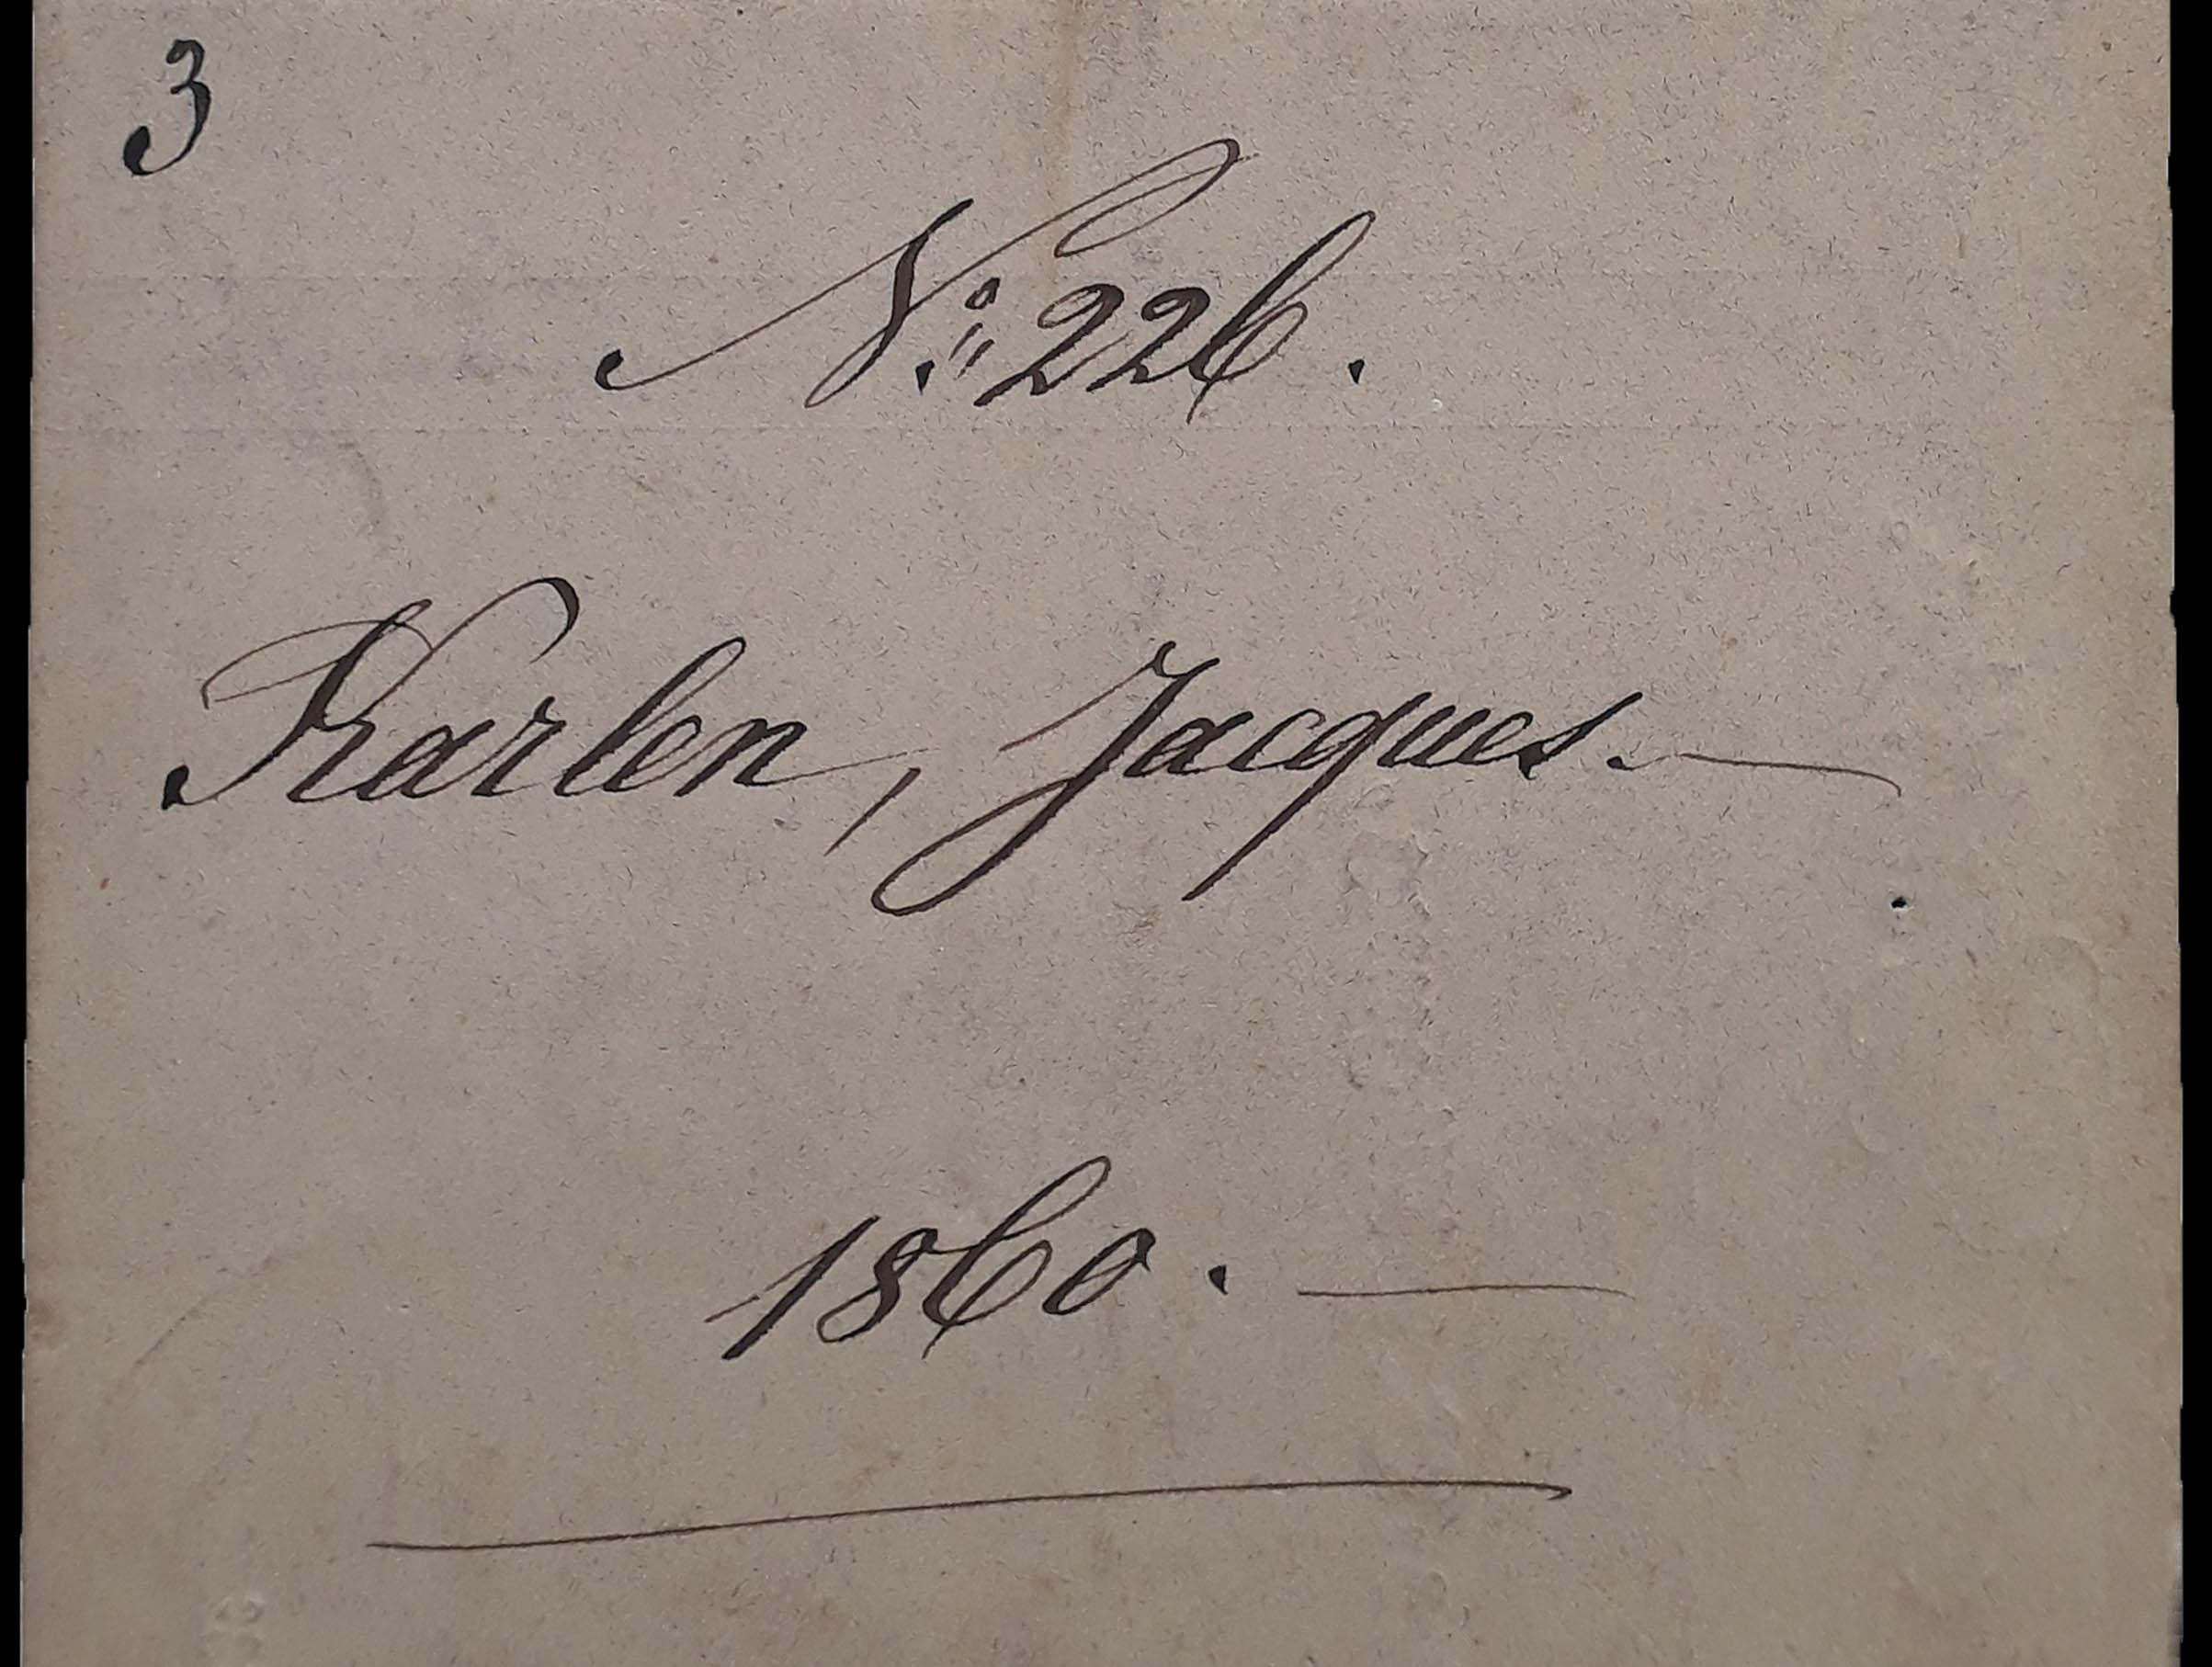 3
No: 226.
Karlen, Jacques. —
1860. —